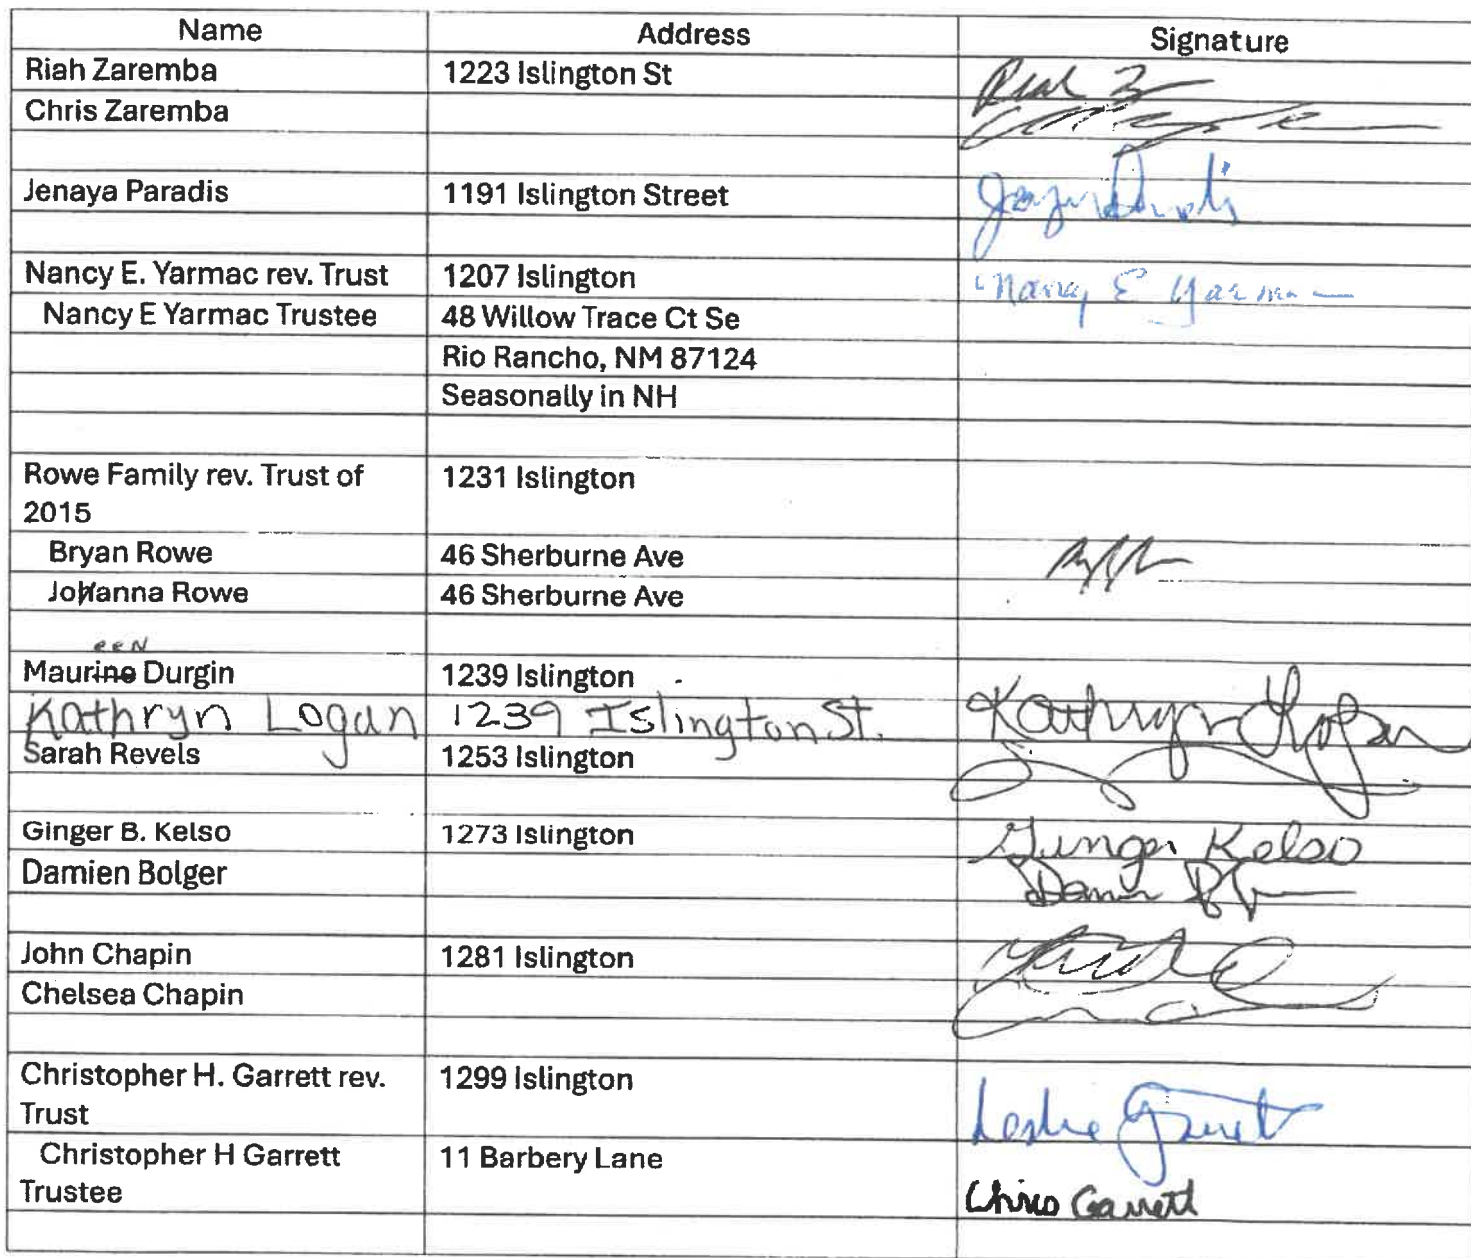 Name Address Signature
Riah Zaremba 1223 Islington St Riah Z
Chris Zaremba
Jenaya Paradis 1191 Islington Street
Nancy E. Yarmac rev. Trust 1207 Islington Nancy E Yarmac
Nancy E Yarmac Trustee 48 Willow Trace Ct Se
Rio Rancho, NM 87124
Seasonally in NH
Rowe Family rev. Trust of 1231 Islington
2015
Bryan Rowe 46 Sherburne Ave
Johanna Rowe 46 Sherburne Ave
een
Maurine Durgin 1239 Islington
Kathryn Logan 1239 Islington St. Kathryn Logan
Sarah Revels 1253 Islington
Ginger B. Kelso 1273 Islington Ginger Kelso
Damien Bolger
John Chapin 1281 Islington
Chelsea Chapin
Christopher H. Garrett rev. 1299 Islington Leslie Garrett
Trust
Christopher H Garrett 11 Barbery Lane
Trustee Chris Garrett